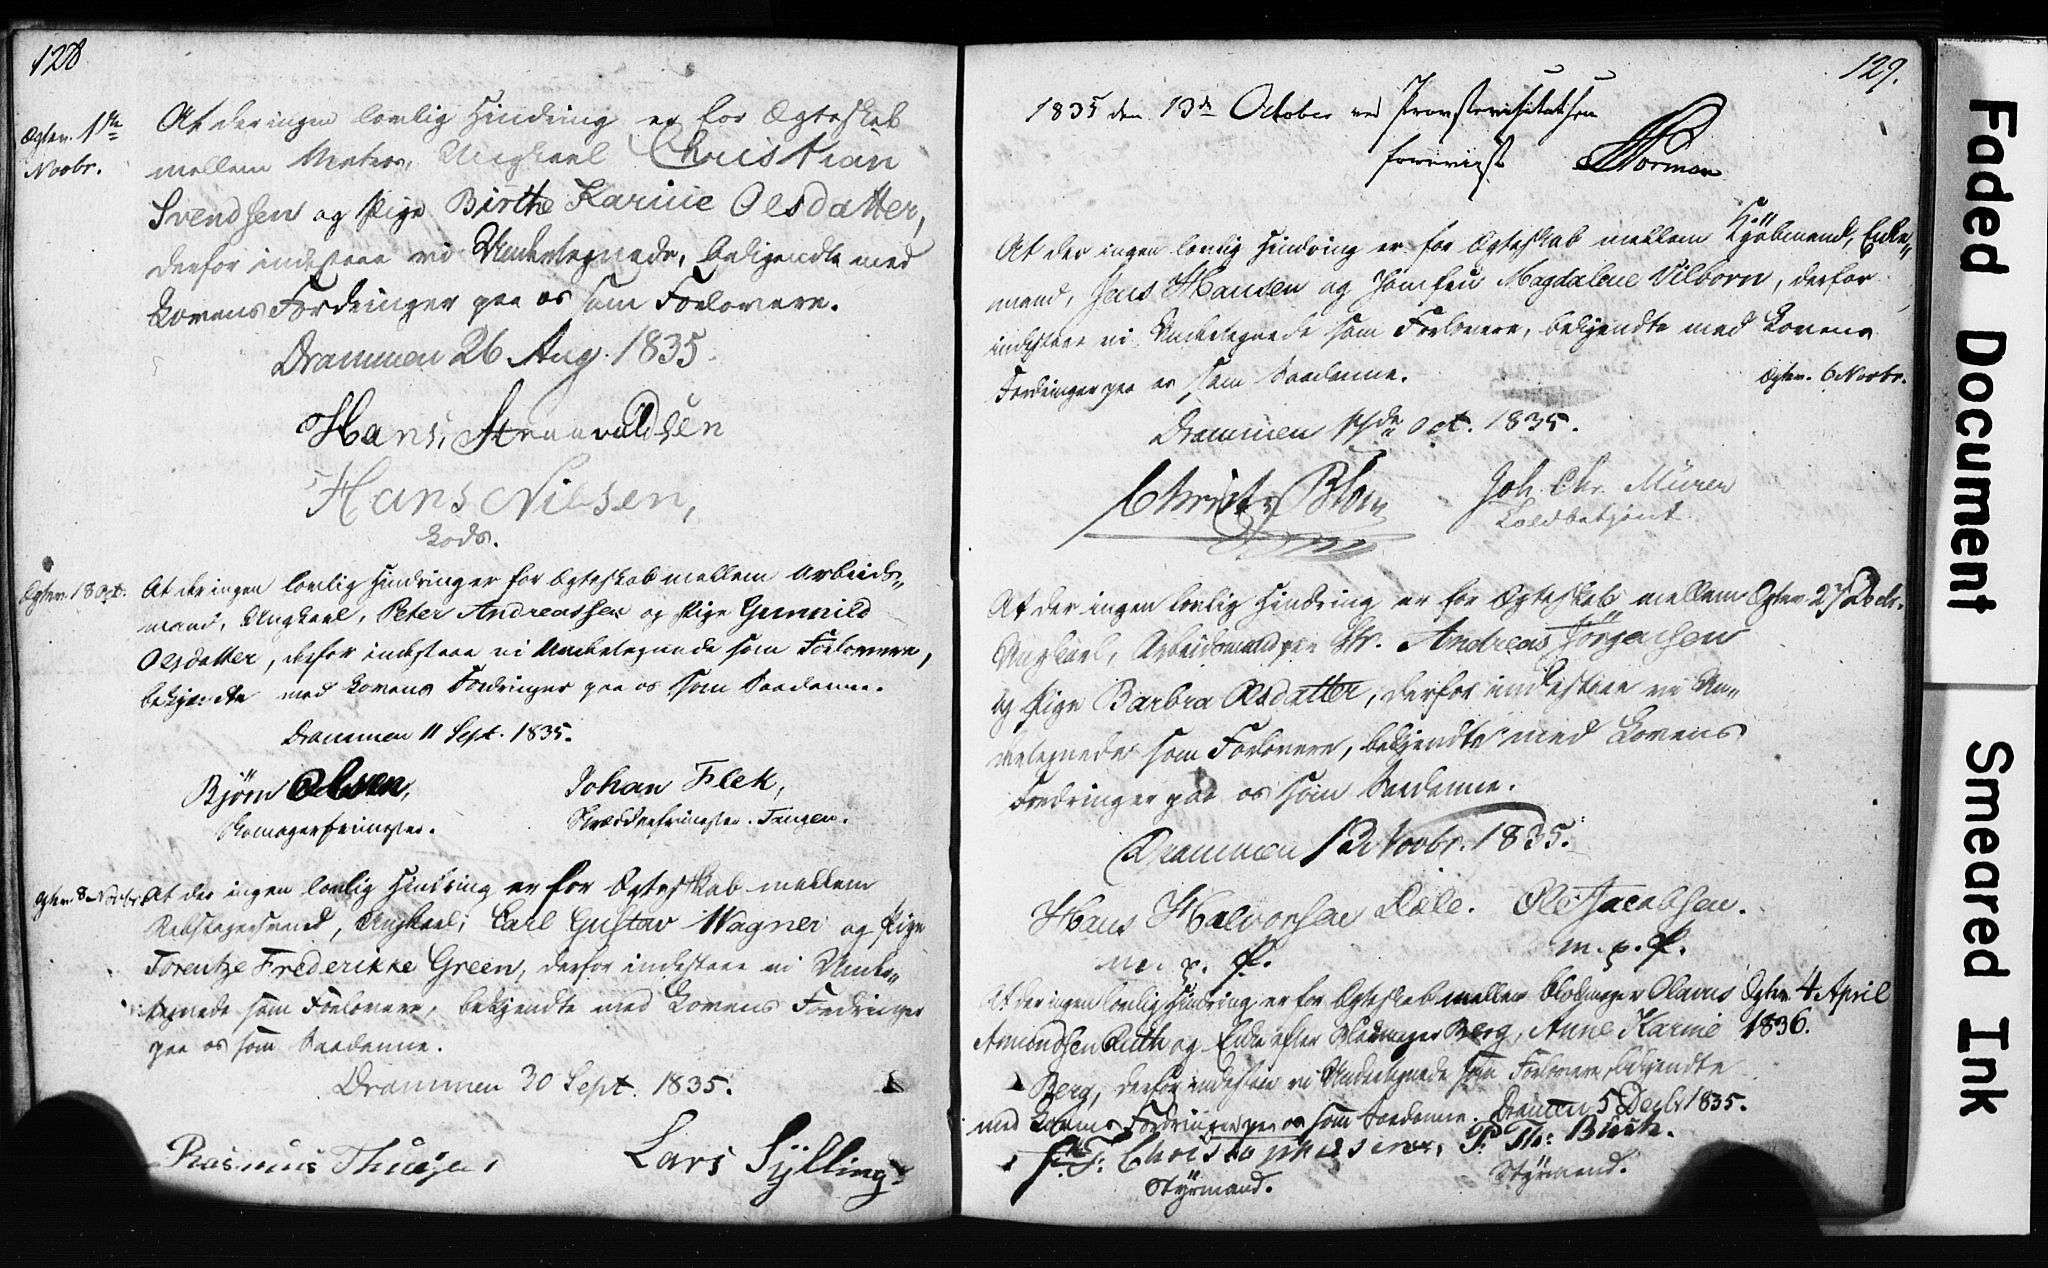 128
Ægtev. 1ste
Novbr.
At der ingen lovlig Hindring er for Ægteskab
mellem Matros, Ungkarl Christian
Svendsen og Pige Birthe Karine Olsdatter,
derfor indestaae vi Undertegnede, bekjendte med
Lovens Fordringer paa os som Forlovere.
Drammen 26 Aug. 1835.
Hans
Hans Nilsen,
Ægtev. 18 Oct.
At der ingen lovlig Hindring er for Ægteskab mellem Arbeids-
mand, Ungkarl, Peter Andreassen og Pige Gunnild
Olsdatter, derfor indestaae vi Undertegnede som Forlovere,
bekjendte med Lovens Fordringer paa os som Saadanne.
Drammen 11 Sept. 1835.
Bjørn Olsen, Johan Flek,
Tangen.
Ægtev. 8 Novbr.
At der ingen lovlig Hindring er for Ægteskab mellem
Rebslagersvend, Ungkarl, Carl Gustav Wagner og Pige
Lorentze Frederikke Green, derfor indestaae vi Under-
tegnede som Forlovere, bekjendte med Lovens Fordringer
paa os som Saadanne.
Drammen 30 Sept. 1835.
Rasmus Lars Sÿlling
129.
1835 den 13de October ved Provstevisitatsen
foreviist Norman
At der ingen lovlig Hindring er for Ægteskab mellem Kjøbmand, Enke-
mand, Jens Hansen og Jomfru Magdalene Vilborn, derfor
indestaae vi Undertegnede som Forlovere, bekjendte med Lovens
Fordringer paa os som Saadanne.
Ægtev. 6 Novbr.
Drammen 14de Oct. 1835.
Christ. Blom Joh. Chr. Mürer
Toldbetjent
At der ingen lovlig Hindring er for Ægteskab mellem
Ægtev. 27 Decbr.
Ungkarl, Arbeidsmand Andreas Jörgensen
og Pige Barbra Olsdatter, derfor indestaae vi Un-
dertegnede som Forlovere, bekjendte med Lovens
Fordringer paa os som Saadanne.
Drammen 12 Novbr. 1835.
Hans Halvorsen Ole Jacobsen.
m. p. P. m. p. P.
At der ingen lovlig Hindring er for Ægteskab mellem Olaves
Ægtev. 4 April
1836.
Amondsen Ruth og Enke efter Berg, Anne Karine
Berg, derfor indestaae vi Undertegnede som Forlovere, bekjendte
med Lovens Fordringer paa os som Saadanne. Drammen 5 Decbr 1835.
Christophersen, P. Th: Buch.
Styrmand. Styrmand.
Faded Document
Smeared Ink